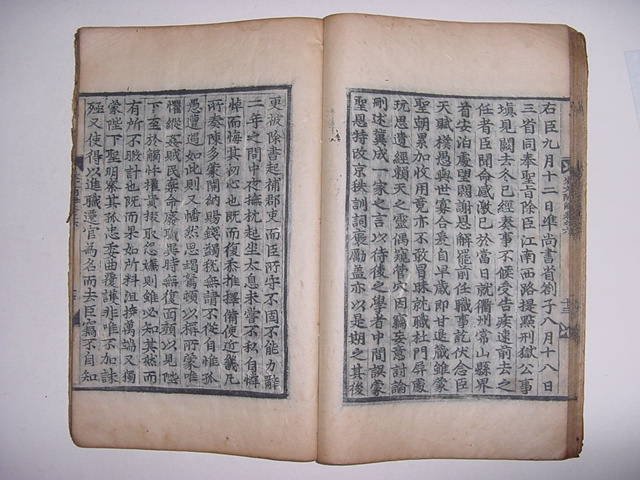 右臣九月十二日準尚書省劄子八月十八日
三省同奉聖旨除臣江南西路提點刑獄公事
填見闕去冬已經奏事不候受告疾速前去之
任者臣聞命感激已於當日就衢州常山縣界
首安泊處望闕謝恩解罷前任職事訖伏念臣
天賦樸愚與世寡合蚤自早歲即甘退藏雖蒙
聖朝累加收用竟亦不敢冒昧就職杜門屏處
玩思遺經賴天之靈偶窺管穴因竊妄意討論
刪述冀成一家之言以待後之學者中間誤蒙
聖恩特改京秩訓詞褒勵蓋亦以是期之其後
更被除書起補郡吏而臣所守不固不能力辭
二年之間中夜撫枕起坐太息未嘗不私自憐
悼而悔其初心也既而復忝推擇備使近畿凡
所奏陳多蒙開納賜錢蠲稅無請不從自惟孤
愚遭遇如此則又幡然思竭駑頓以報所蒙唯
懼縱姦賊民棄命廢職異時無復面顏以見陛
下至於觸忤權貴掇取怨嫌則雖必知其如而
有所不暇計也既而果如所料沮撓萬端又獨
蒙陛下聖明察其孤忠委曲覆護非唯不加誅
殛又使得以進職遷官為名而去臣竊不自知